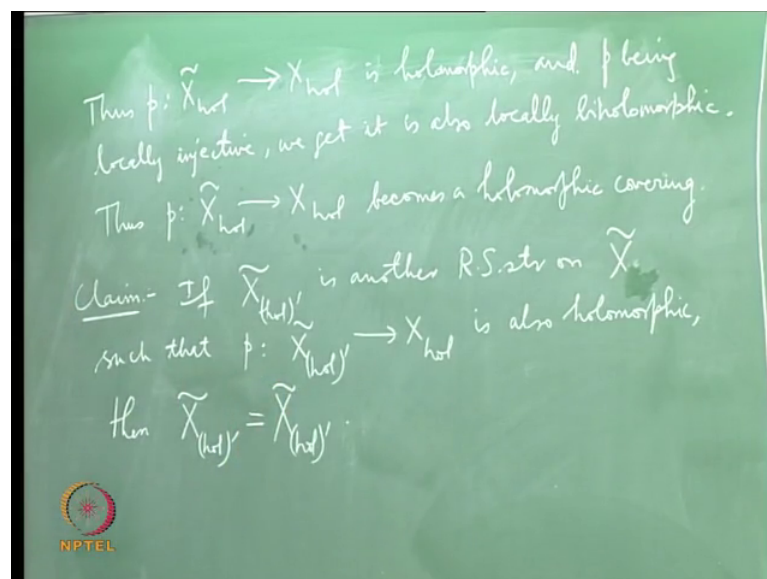 Thus p: X̃_hol → X_hol is holomorphic, and p being
locally injective, we get it is also locally biholomorphic.
Thus p: X̃_hol → X_hol becomes a holomorphic covering.
Claim:- If X̃_(hol)' is another R.S. str on X̃.
such that p: X̃_(hol)' → X_hol is also holomorphic,
then X̃_(hol)' = X̃_(hol)'.
NPTEL